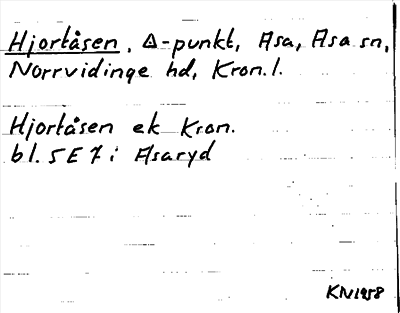 Hjortåsen, Δ-punkt, Asa, Asa sn,
Norrvidinge hd, Kron. l.
Hjortåsen ek Kron.
bl. 5 E 7 i Asaryd
KN1958